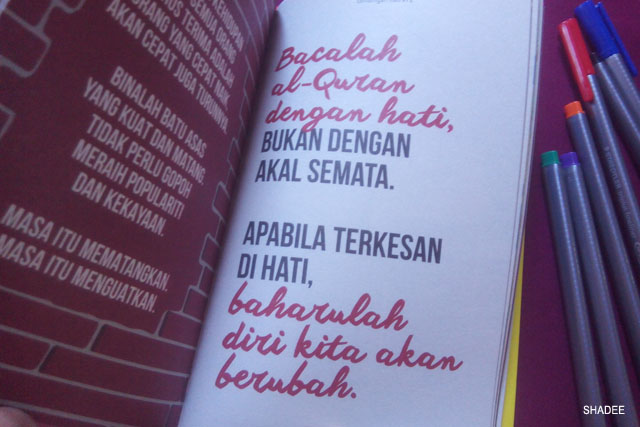 SEMUA ORANG
TERIMA ADALAH
ORANG YANG CEPAT NAIK,
AKAN CEPAT JUGA TURUNNYA.
BINALAH BATU ASAS
YANG KUAT DAN MATANG.
TIDAK PERLU GOPOH
MERAIH POPULARITI
DAN KEKAYAAN.
MASA ITU MEMATANGKAN.
MASA ITU MENGUATKAN.
Bacalah
al-Quran
dengan hati,
BUKAN DENGAN
AKAL SEMATA.
APABILA TERKESAN
DI HATI,
baharulah
diri kita akan
berubah.
SHADEE